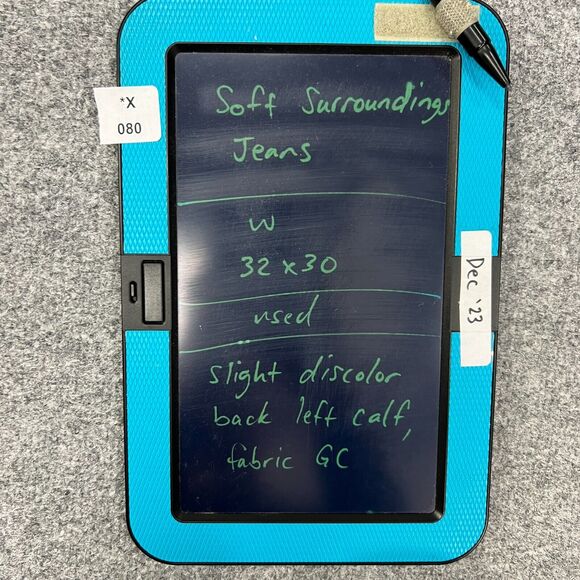 Soff Surroundings
Jeans
W
32 x 30
used
slight discolor
back left calf,
fabric GC
*X
080
Dec '23